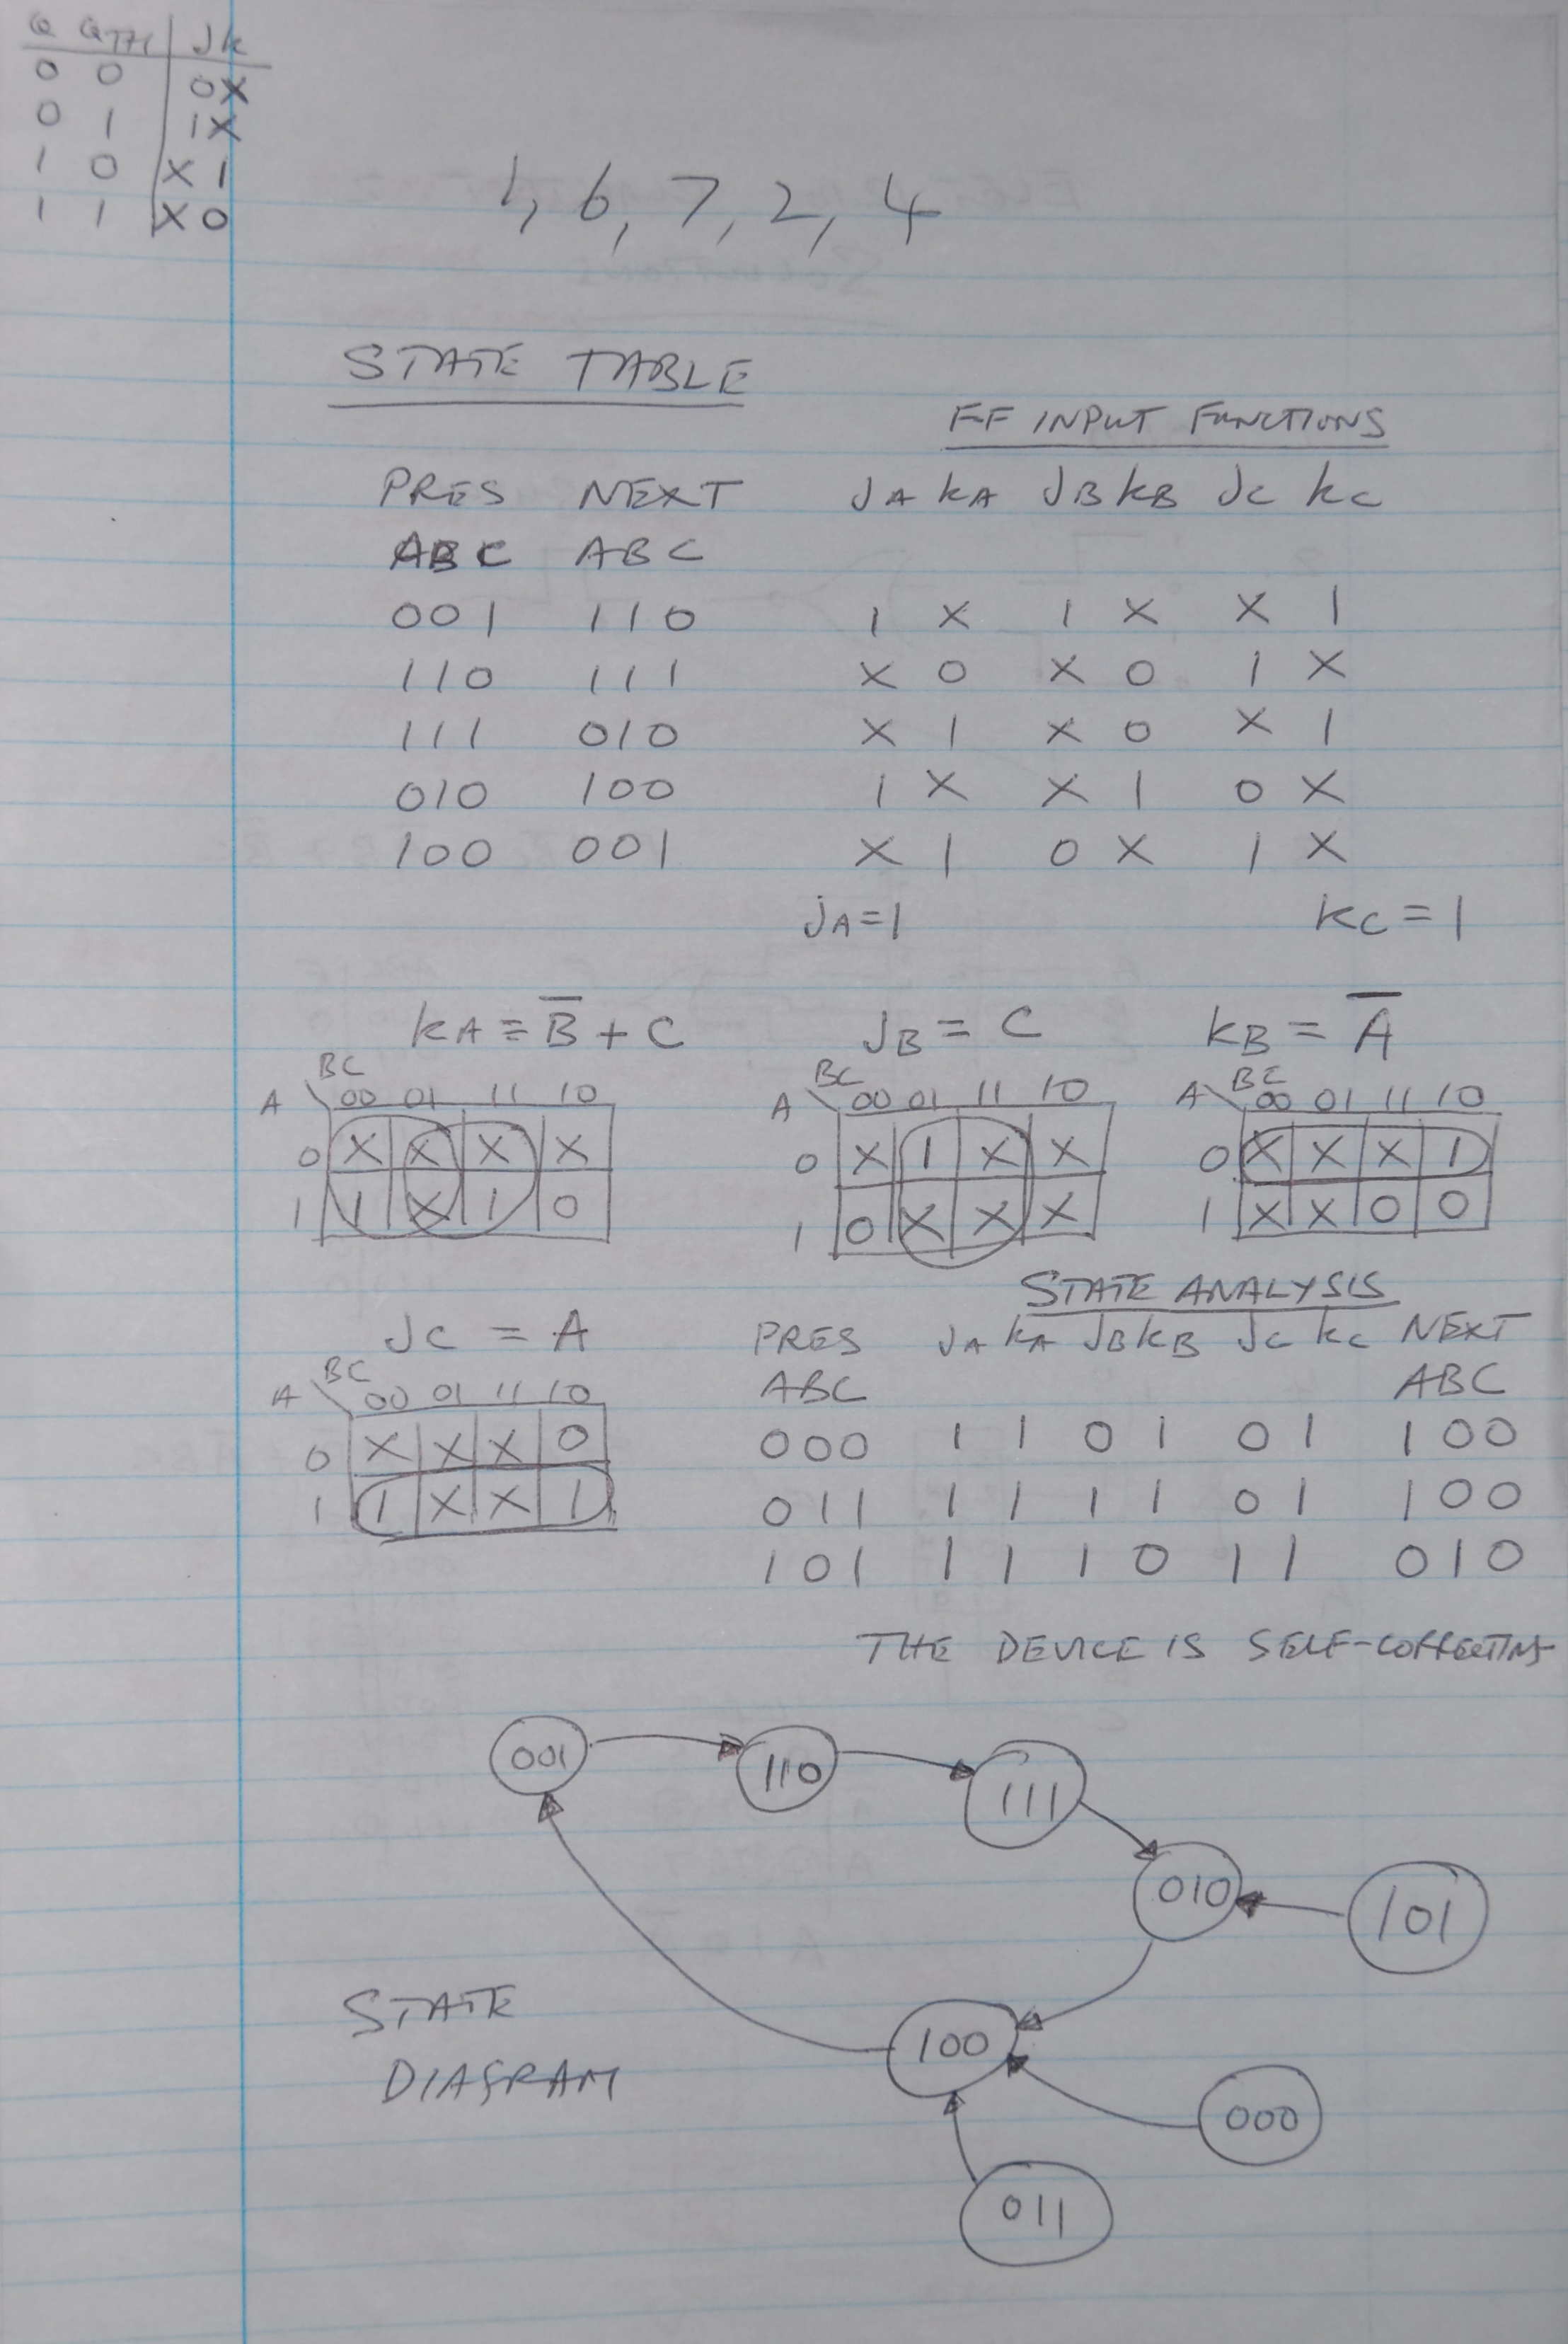 Q QT+1 | J K
0 0 | 0 X
0 1 | 1 X
1 0 | X 1
1 1 | X 0
1, 6, 7, 2, 4
STATE TABLE
FF INPUT FUNCTIONS
PRES NEXT JA KA JB KB JC KC
ABC ABC
001 110 1 X 1 X X 1
110 111 X 0 X 0 1 X
111 010 X 1 X 0 X 1
010 100 1 X X 1 0 X
100 001 X 1 0 X 1 X
JA=1 KC=1
KA = B̅ + C JB = C KB = A̅
A \ BC 00 01 11 10
0 X X X X
1 1 X 1 0
A \ BC 00 01 11 10
0 X 1 X X
1 0 X X X
A \ BC 00 01 11 10
0 X X X 1
1 X X 0 0
JC = A
A \ BC 00 01 11 10
0 X X X 0
1 1 X X 1
STATE ANALYSIS
PRES JA KA JB KB JC KC NEXT
ABC ABC
000 1 1 0 1 0 1 100
011 1 1 1 1 0 1 100
101 1 1 1 0 1 1 010
THE DEVICE IS SELF-CORRECTING
001
110
111
010
101
STATE
DIAGRAM
100
000
011